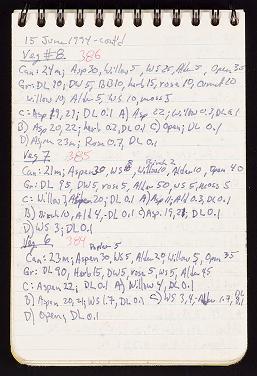 15 June 1994 - cont'd
Veg #8. 386
Can: 24m; Aspen 30, Willow 5, WS 25, Alder 5, Open 35
Gr: DL 90; DW 5, BB 10, herb 15, rose 10, Currant 20
Willow 10, Alder 5, WS 10, moss 5
C: Asp 19, 27; DL 0.1 A) Asp 22; Willow 0.7, DL 0.1
B) Asp 20, 22; herb 0.2, DL 0.1 C) Open; DL 0.1
D) Aspen 23m; Rose 0.7, DL 0.1
Veg 7 385
Birch 2
Can: 21m; Aspen 30, WS 8, Willow 10, Alder 10, Open 40
Gr: DL 95, DW 5, rose 5, Alder 50, WS 5, Moss 5
C: Willow 7, Aspen 20; DL 0.1 A) Asp 11; Ald 0.3, DL 0.1
B) Birch 10, Ald 4, DL 0.1 C) Asp. 19, 21; DL 0.1
D) WS 3; DL 0.1
Veg 6 384
Poplar 5
Can: 23m; Aspen 30, WS 5, Alder 20, Willow 5, Open 35
Gr: DL 90, Herb 15, DW 5, rose 5, WS 5, Alder 45
C: Aspen 22; DL 0.1 A) Willow 4, DL 0.1
B) Aspen 20, 21; WS 1.7, DL 0.1 C) WS 3, 4, Alder 1.7, DL 0.1
D) Open; DL 0.1